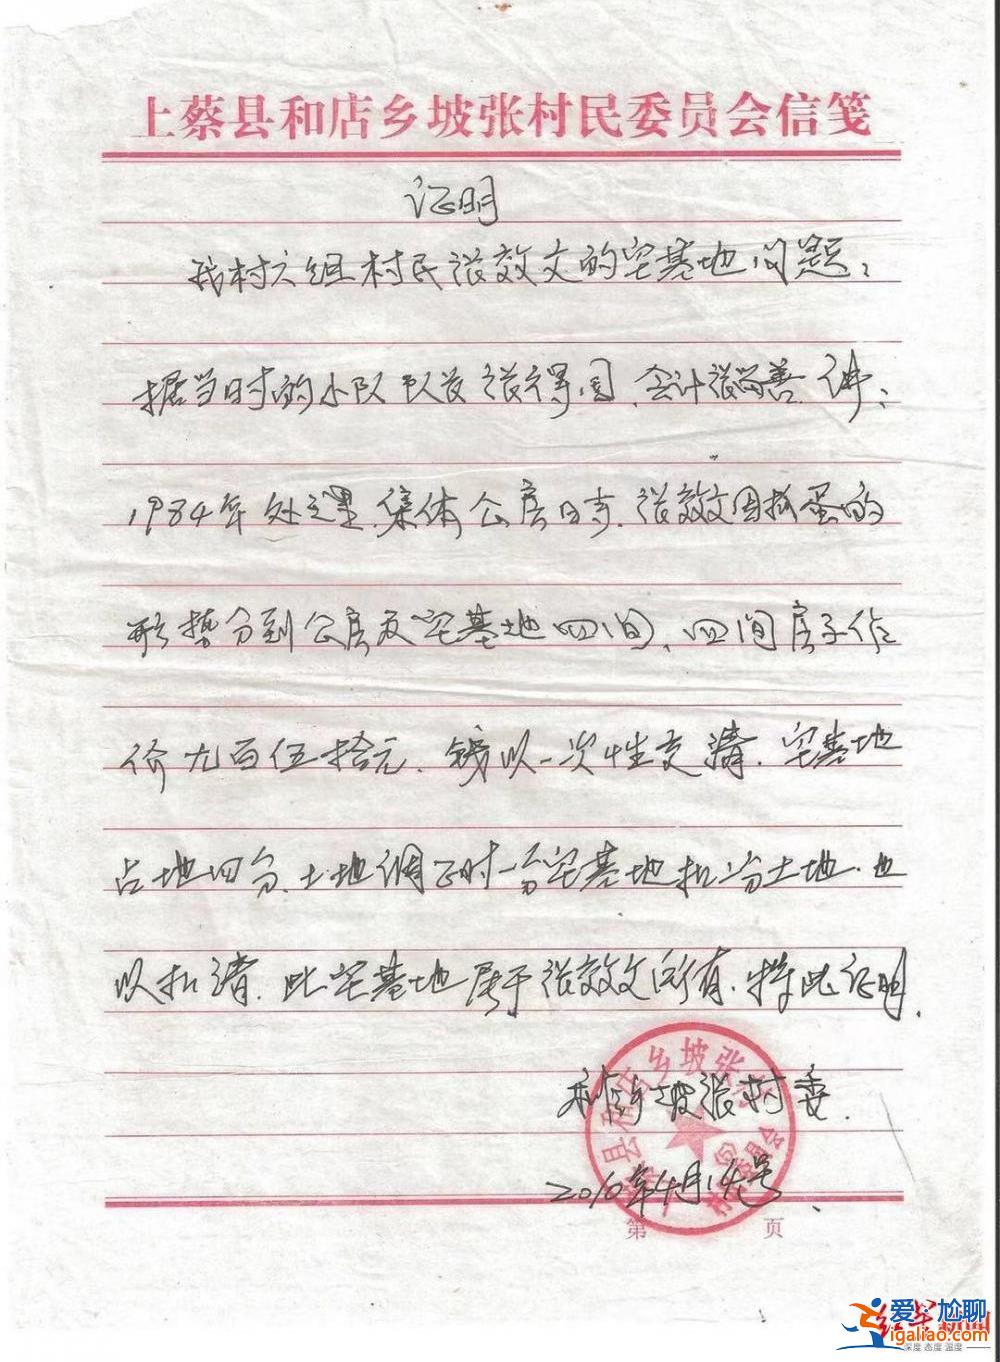 上蔡县和店乡坡张村民委员会信笺
证明
我村六组村民张效文的宅基地问题,
据当时的小队队长张得国、会计张尚善、讲、
1984年处理集体公房时、张效文因抓蛋的
形势分到公房及宅基地四间、四间房子作
价九百伍拾元、钱以一次性交清、宅基地
占地四分、土地调正时一分宅基地扣二分土地、也
以扣清、此宅基地属于张效文所有、特此证明、
坡张村委、
2010年4月14号、
第 页
爱尬聊
igaliao.com
深度 态度 温度